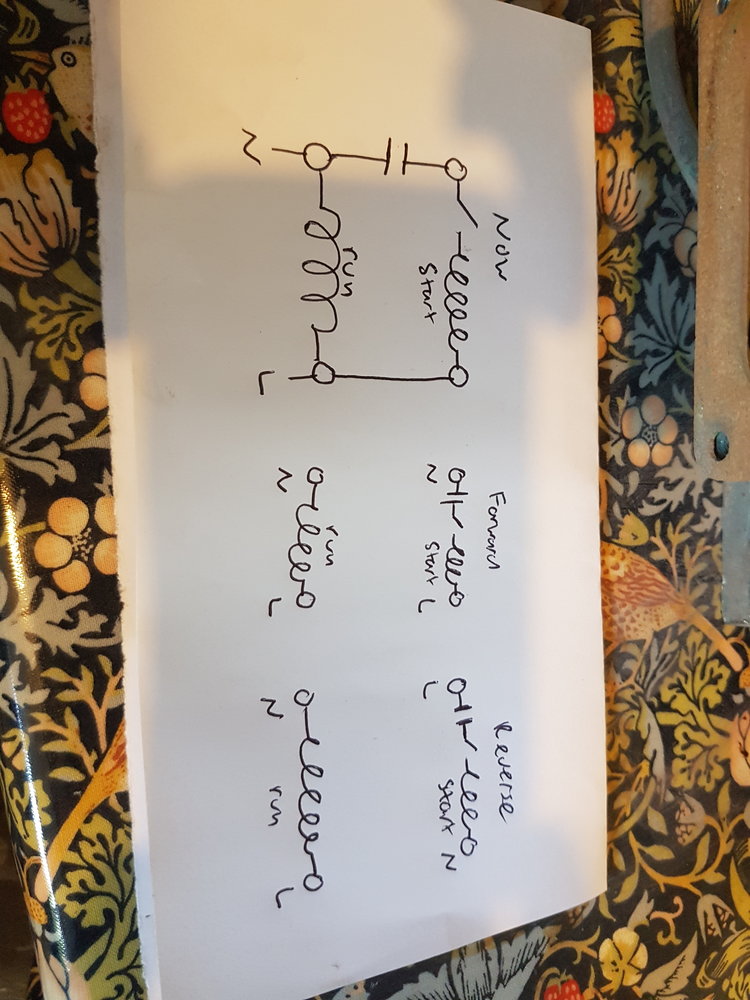 Now
Start
run
N
L
Forward
N
Start
L
run
N
L
Reverse
L
Start
N
N
run
L